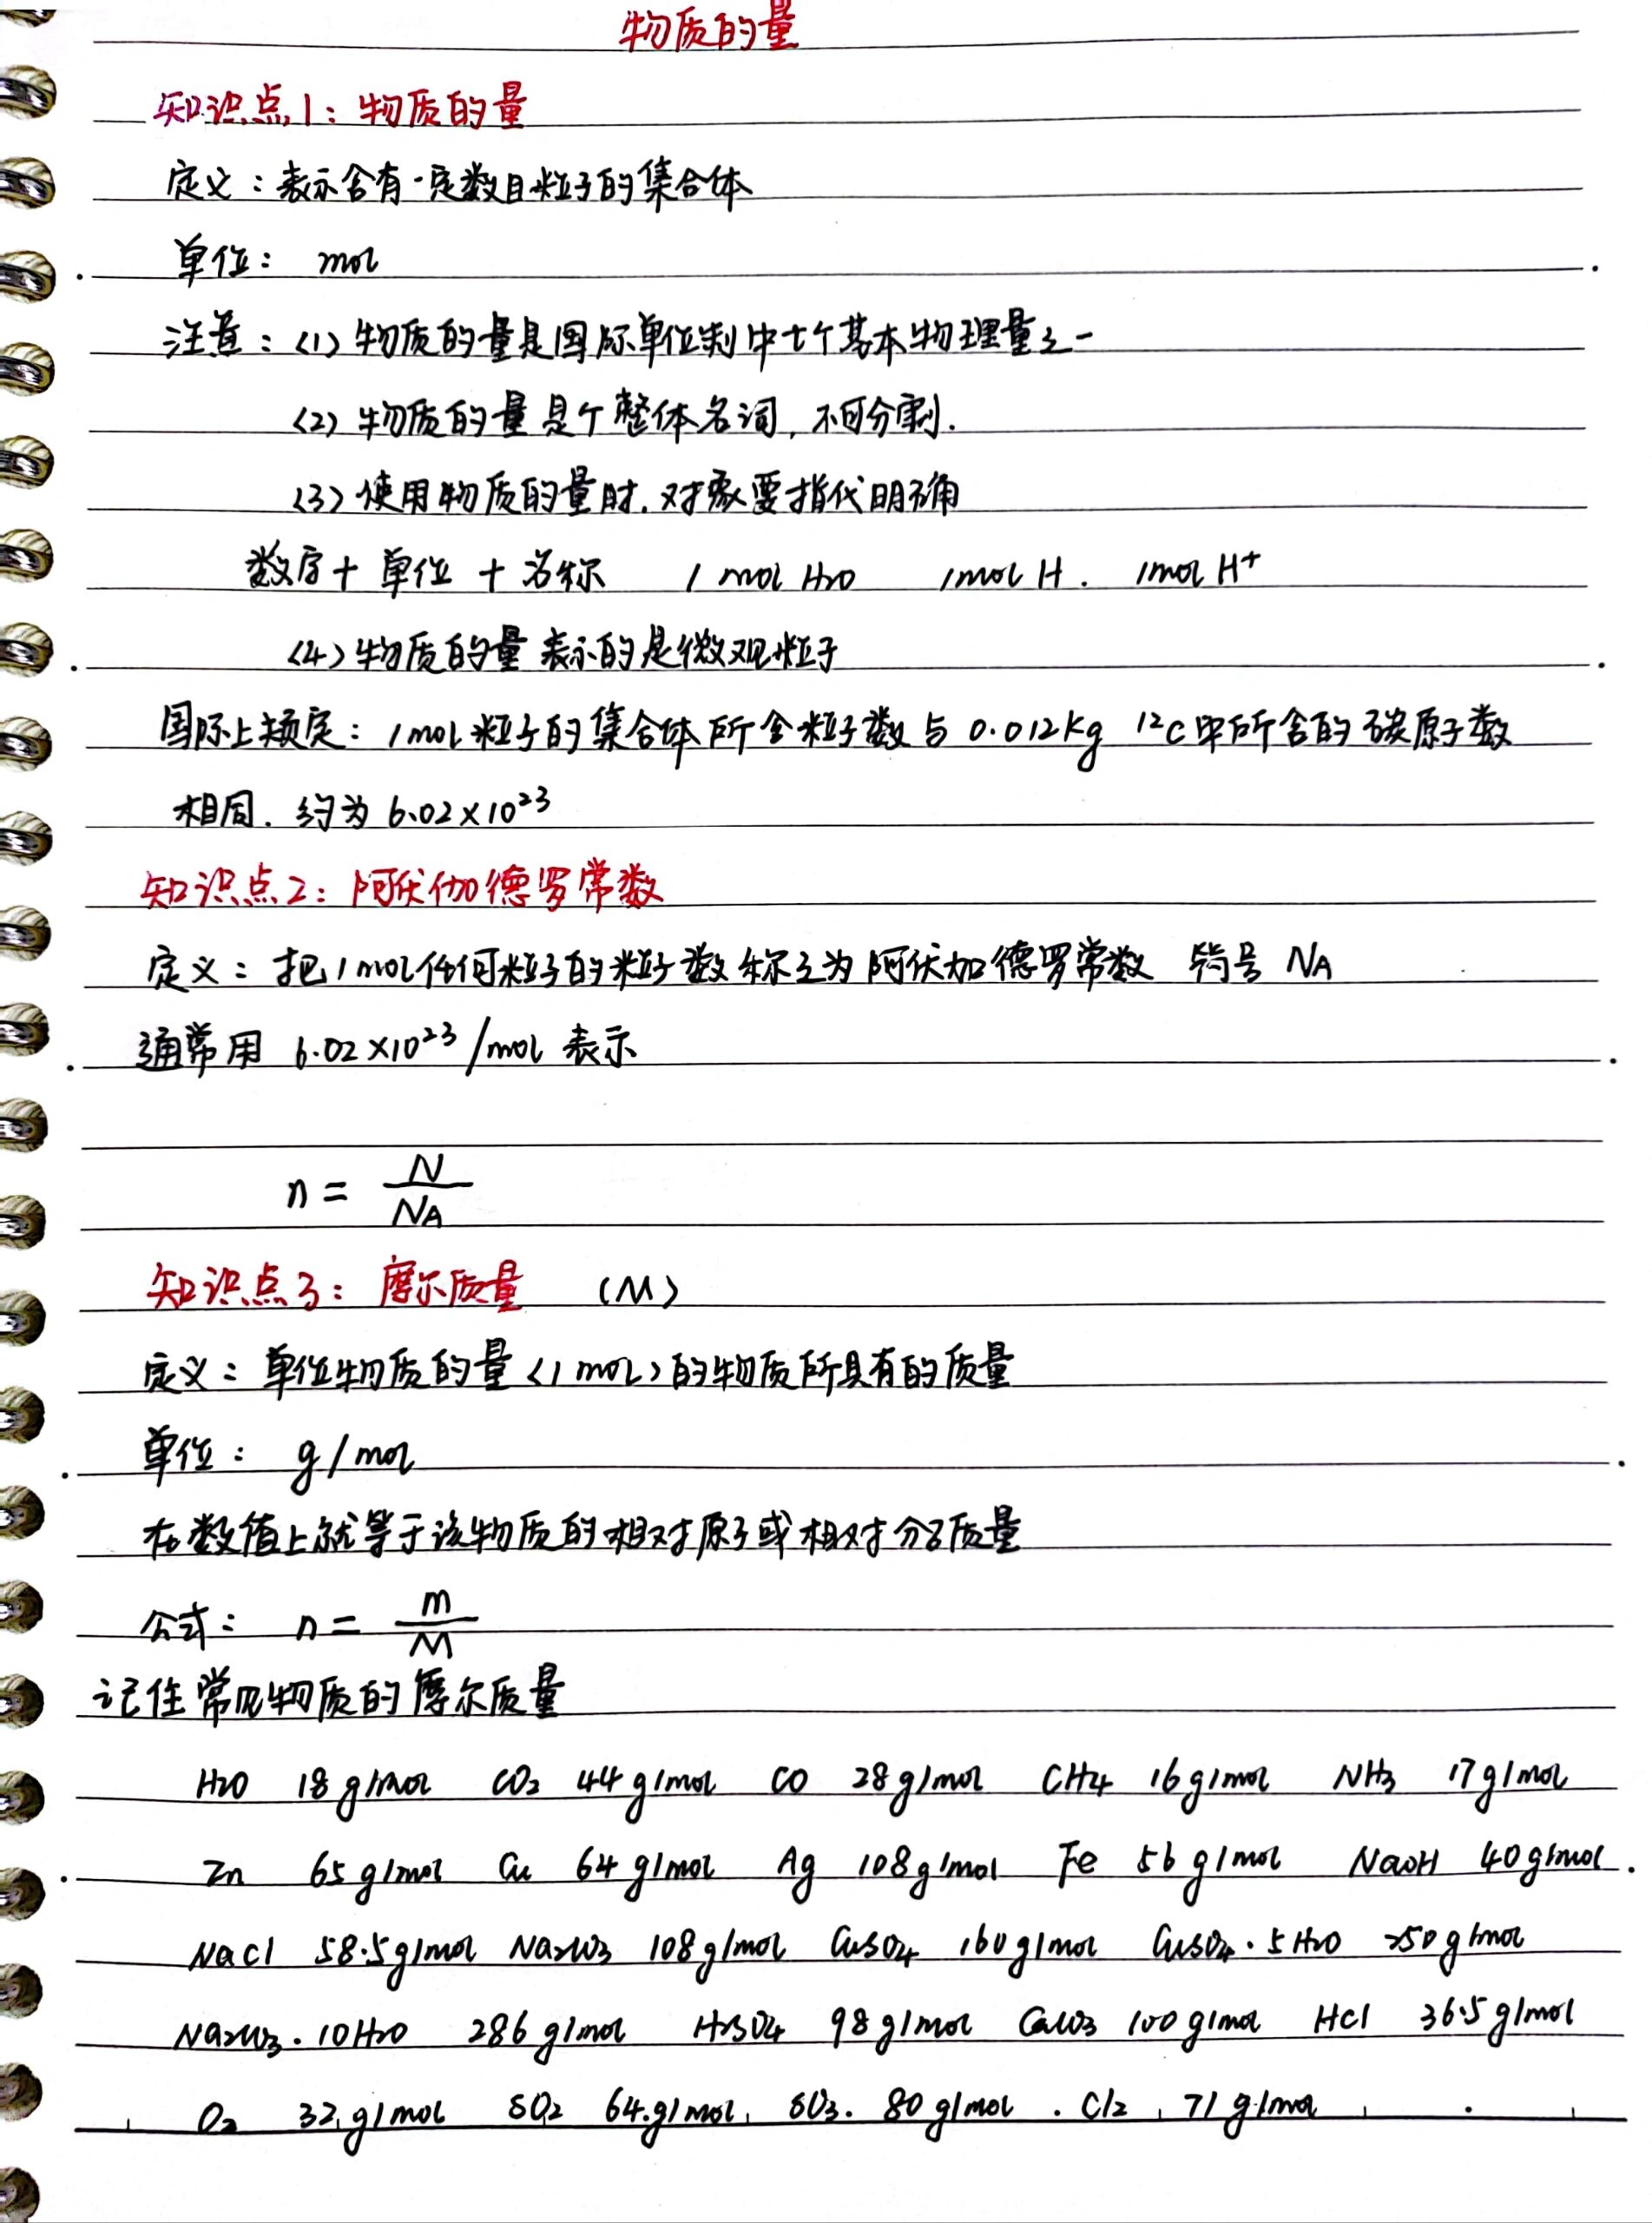 物质的量
知识点1：物质的量
定义：表示含有一定数目粒子的集合体
单位： mol
注意：(1)物质的量是国际单位制中七个基本物理量之一
(2) 物质的量是个整体名词，不可分割.
(3)使用物质的量时.对象要指代明确
数字+ 单位 + 名称 1 mol H2O 1mol H. 1mol H+
(4)物质的量表示的是微观粒子
国际上规定：1mol粒子的集合体所含粒子数与0.012kg ¹²C中所含的碳原子数
相同. 约为6.02×10²³
知识点2：阿伏伽德罗常数
定义：把1mol任何粒子的粒子数称之为阿伏加德罗常数 符号 NA
通常用 6.02×10²³/mol 表示
n = N/NA
知识点3：摩尔质量 (M)
定义：单位物质的量(1 mol)的物质所具有的质量
单位： g/mol
在数值上就等于该物质的相对原子或相对分子质量
公式： n = m/M
记住常见物质的摩尔质量
H2O 18g/mol CO2 44g/mol CO 28g/mol CH4 16g/mol NH3 17g/mol
Zn 65g/mol Cu 64g/mol Ag 108g/mol Fe 56g/mol NaOH 40g/mol
NaCl 58.5g/mol Na2CO3 108g/mol CuSO4 160g/mol CuSO4·5H2O 250g/mol
Na2CO3·10H2O 286g/mol H2SO4 98g/mol CaCO3 100g/mol HCl 36.5g/mol
O2 32g/mol SO2 64g/mol SO3 80g/mol Cl2 71g/mol